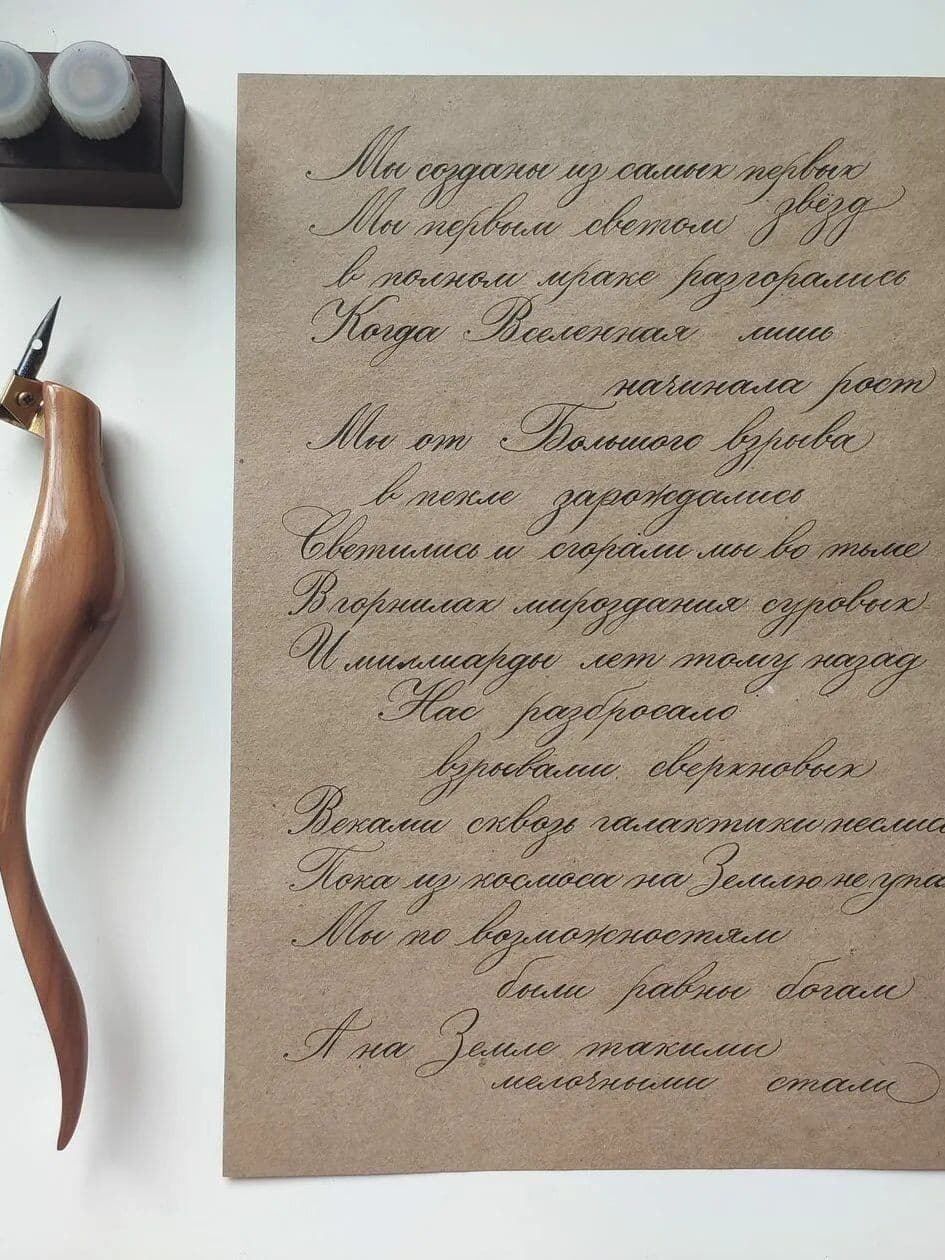 Мы созданы из самых первых
звёзд
Мы первым светом
в полном мраке разгорались
Когда Вселенная лишь
начинала рост
Мы от Большого взрыва
в пекле зарождались
Светились и сгорали мы во тьме
В горнилах мироздания суровых
И миллиарды лет тому назад
Нас разбросало
взрывами сверхновых
Веками сквозь галактики неслись
Пока из космоса на Землю не упа
Мы по возможностям
были равны богам
А на Земле такими
мелочными стали